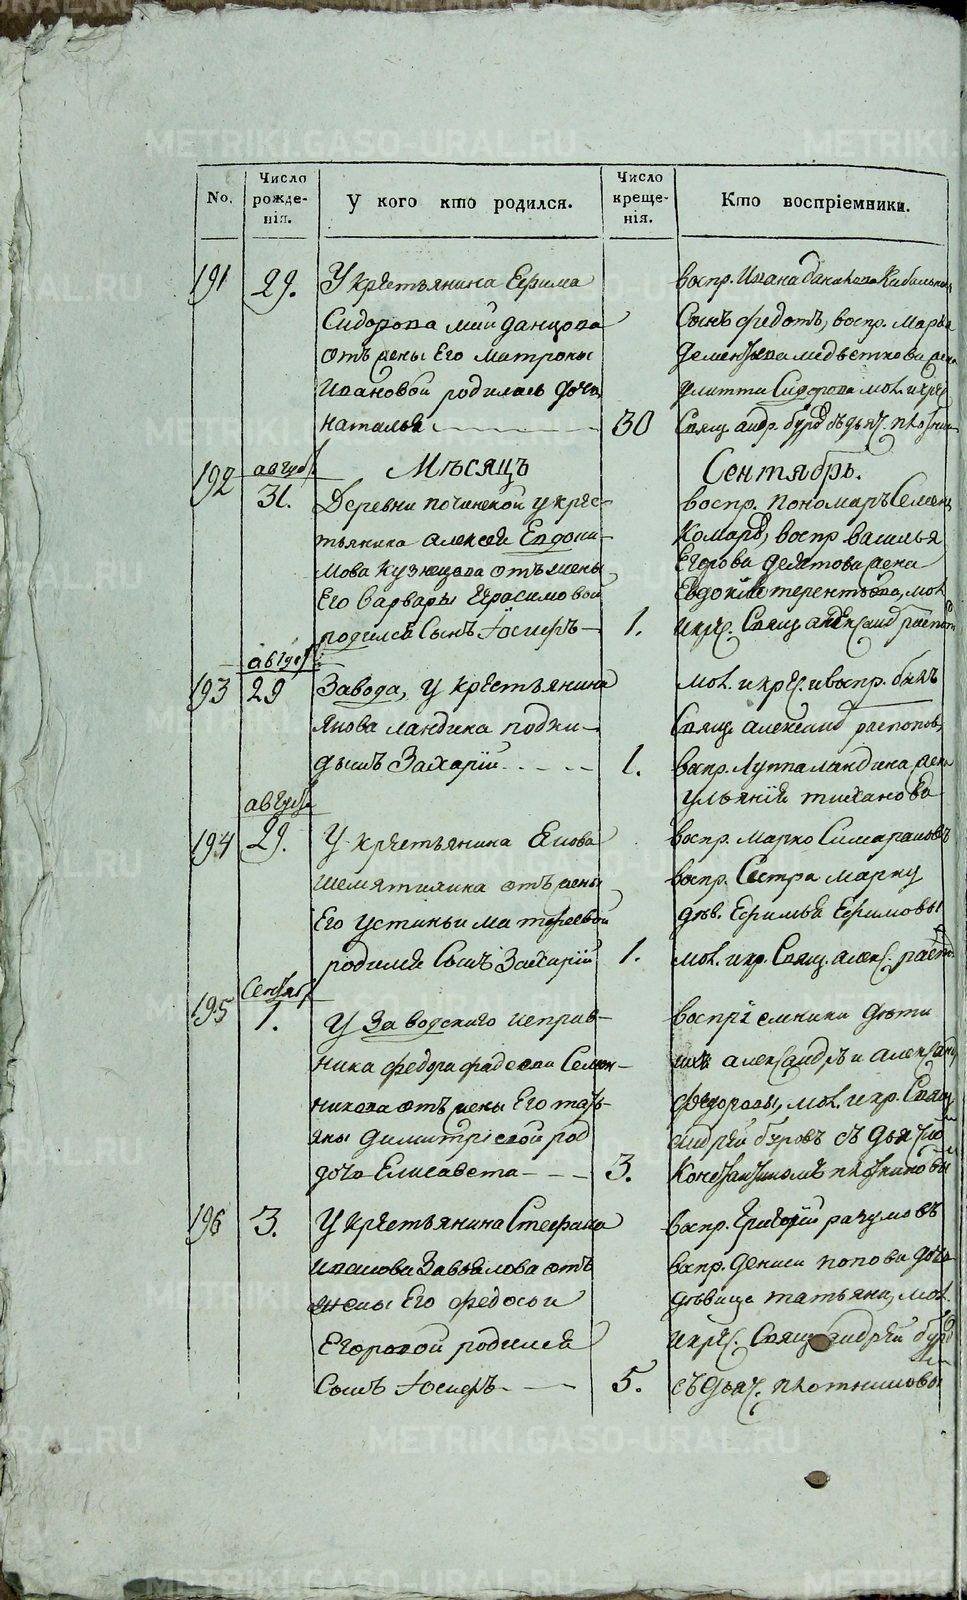 METRIKI.GASO-URAL.RU
No.
Число рожденія.
У кого кто родился.
Число крещенія.
Кто воспріемники.
191
29.
У крестьянина Ефима
Сидорова
отъ жены Его матроны
Ивановой родилась дочь
наталья
30
воспр. Ивана
Сынъ федотъ, воспр. Марья
жена
Сидорова мол. и кре.
Свящ. андр.
192
августа
31.
Мѣсяцъ
Сентябрь.
Деревни починской у крес-
тьянина алексея Евдоки-
мова кузнецова отъ жены
Его варвары Герасимовой
родился Сынъ Іосифъ
1.
воспр. пономаръ Семенъ
Комаровъ, воспр василья
Егорова жена
Евдокия терентьева, мол.
и кре. Свящ. александ распоповъ
193
августа
29
Завода, у крестьянина
якова ландика подки-
дышъ Захарій
1.
мол. и кре. и воспр. былъ
Свящ. александ распоповъ,
воспр. Луппа ландика жена
ульянія тиханова
194
августа
29.
У крестьянина Якова
отъ жены
Его устиньи матфеевой
родился Сынъ Захарій
1.
воспр. марко
воспр. Сестра марку
дѣв. Ефимья Ефимовы
мол. и кр. Свящ. алекс. распоп.
195
Сентяб.
1.
У Заводскаго исправ-
ника федора фадеева Селян-
никова отъ жены Его тать-
яны димитріевой род
дочь Елисавета
3.
воспріемники дѣти
ихъ александръ и александра
федоровы, мол. и кр. Свящ
андрей съ дьячко
196
3.
У крестьянина Стефана
Иванова Завьялова отъ
жены Его федосьи
Егоровой родился
Сынъ Іосифъ
5.
воспр. Григорій разумовъ
воспр. дениса попова дочь
дѣвица татьяна, мол.
и кре. Свящ андрей
съ дьяч. плотниковы